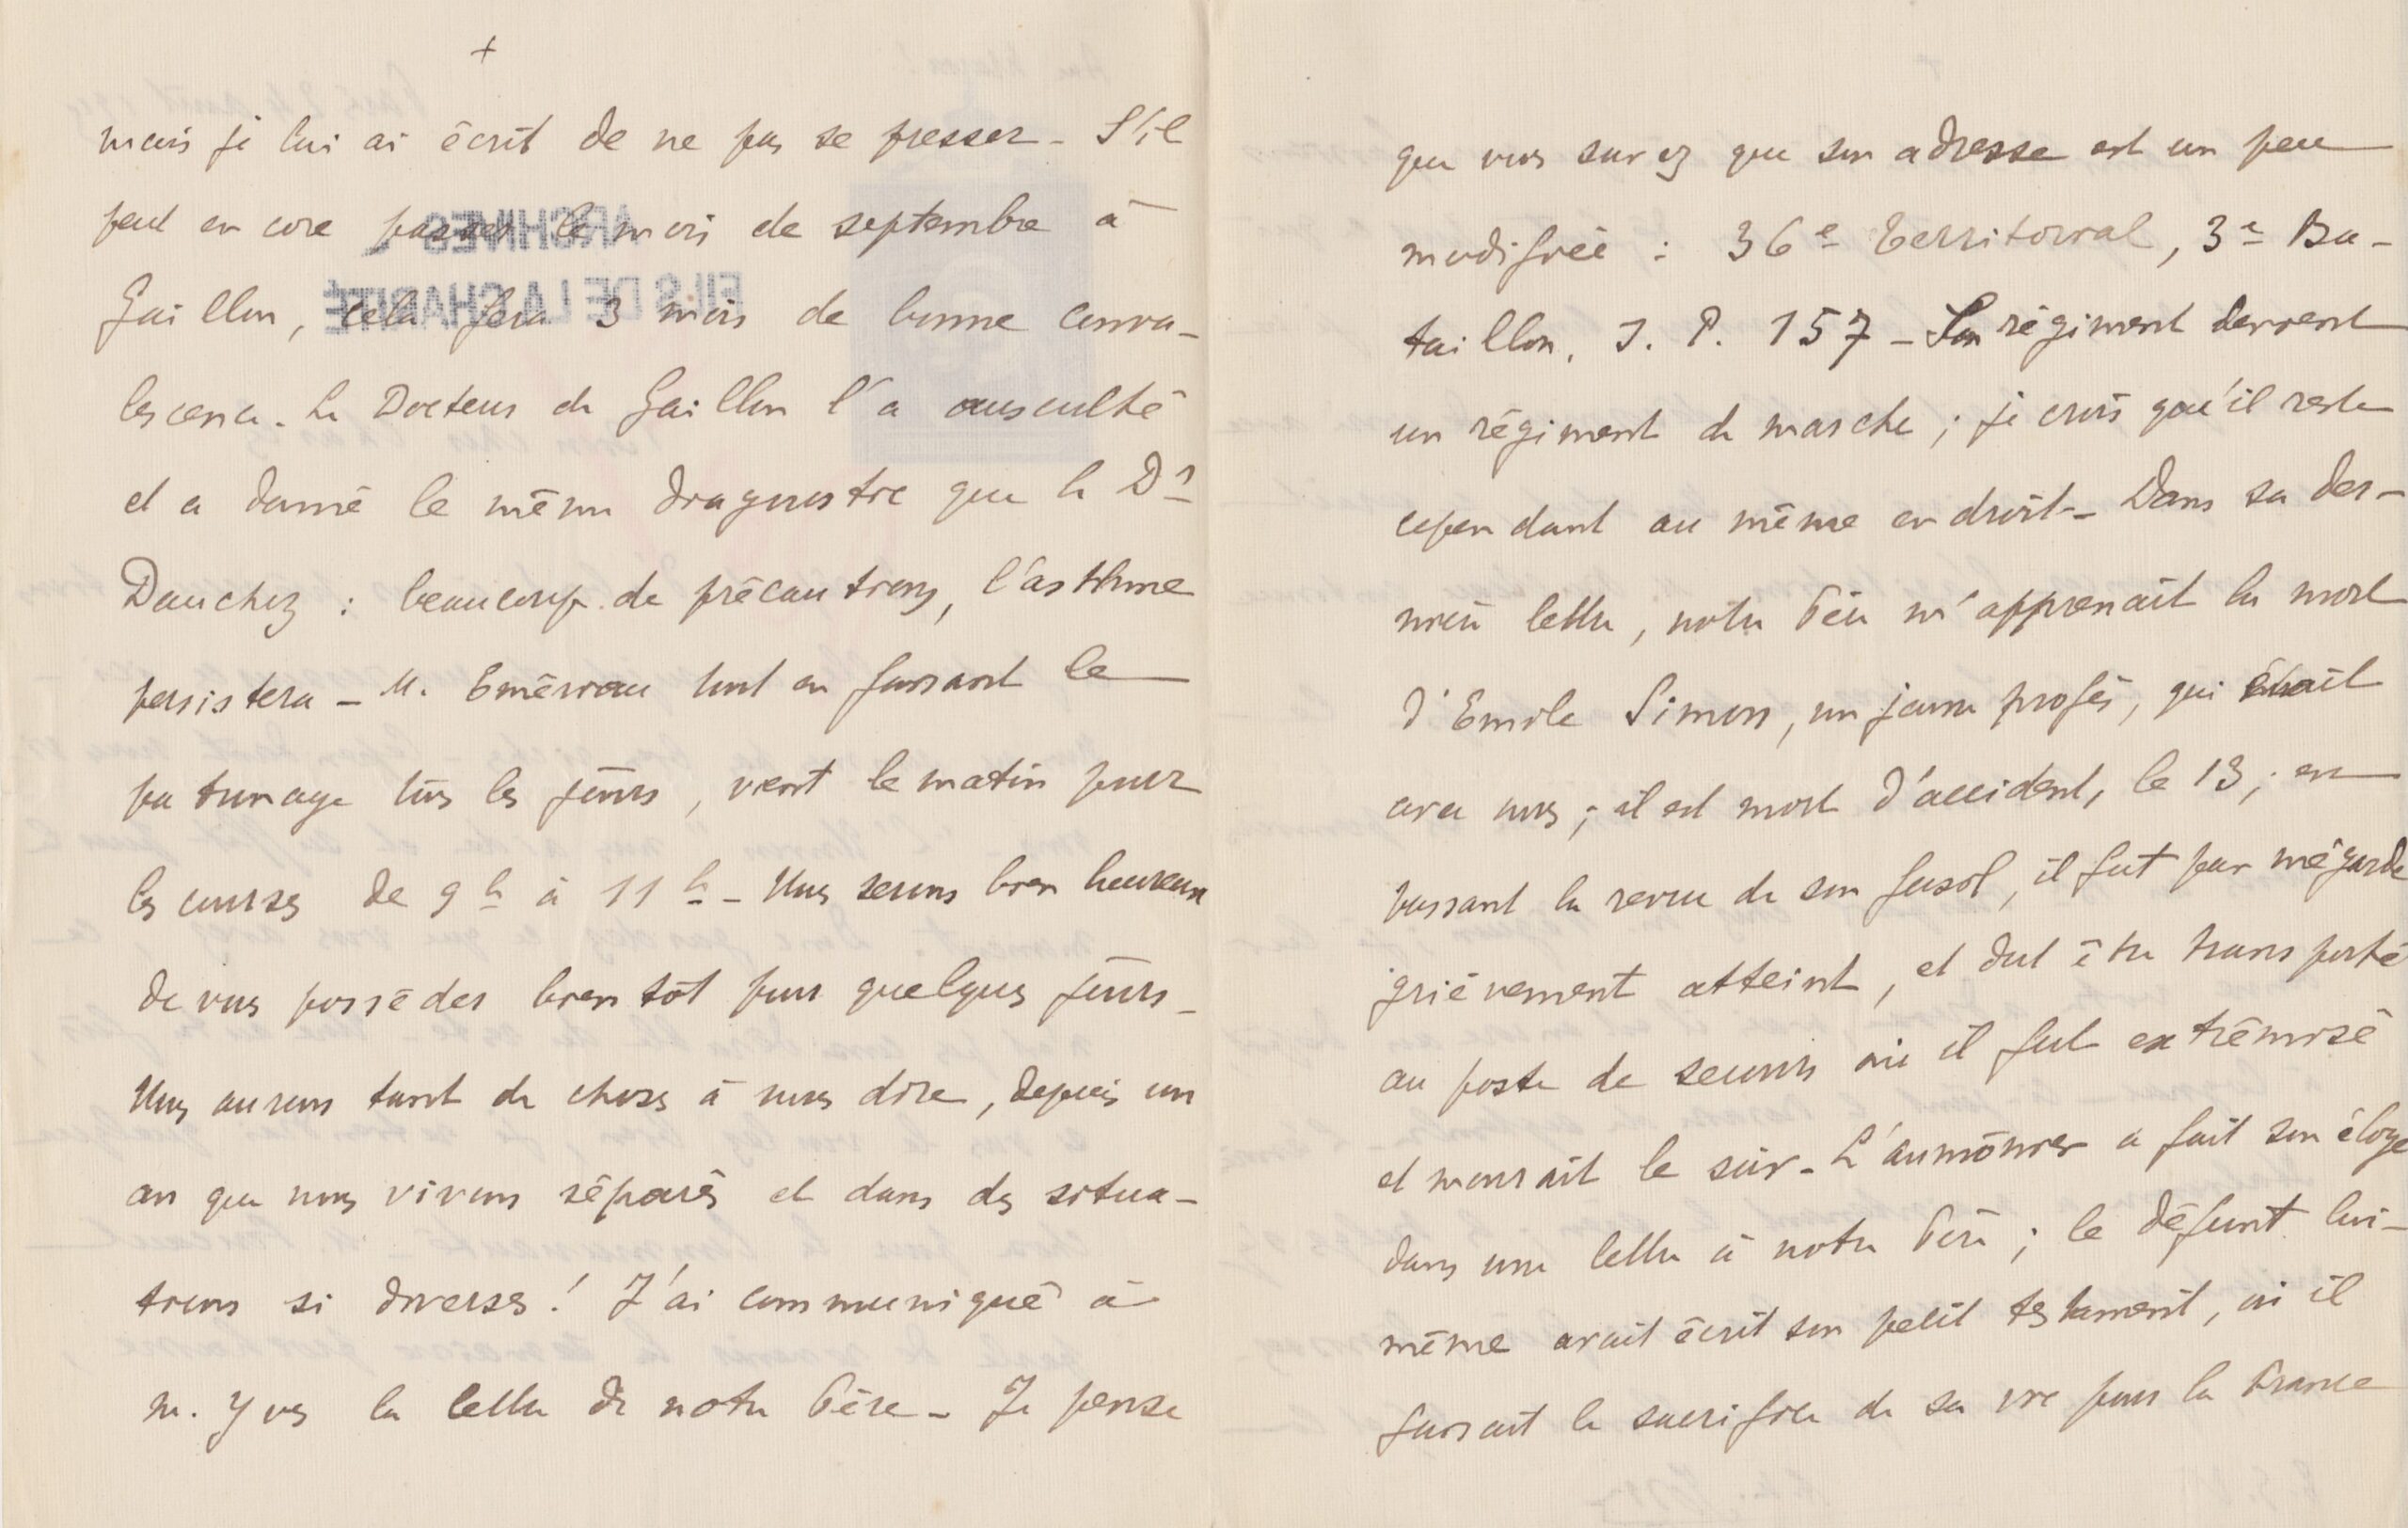 +
mais je lui ai écrit de ne pas se presser - S'il
peut encore passer le mois de septembre à
Gaillon, cela fera 3 mois de bonne conva-
lescence. Le Docteur de Gaillon l'a ausculté
et a donné le même diagnostic que le Dr
Dauchez : beaucoup de précautions, l'asthme
persistera - M. Eméreau tout en faisant le
patronage tous les jours, vient le matin pour
les courses de 9h à 11h - Nous serons bien heureux
de vous posséder bientôt pour quelques jours -
Nous aurons tant de choses à nous dire, depuis un
an que nous vivons séparés et dans des situa-
tions si diverses ! J'ai communiqué à
M. Yves la lettre de notre Père - Je pense
que vous savez que son adresse est un peu
modifiée : 36e Territorial, 3e Ba-
taillon. S. P. 157 - Son régiment devient
un régiment de marche ; je crois qu'il reste
cependant au même endroit - Dans sa der-
nière lettre, notre Père m'apprenait la mort
d'Emile Simon, un jeune profès, qui était
avec nous ; il est mort d'accident, le 13 ; en
passant la revue de son fusil, il fut par mégarde
grièvement atteint, et dut être transporté
au poste de secours où il fut extrêmisé
et mourait le soir - L'aumônier a fait son éloge
dans une lettre à notre Père ; le défunt lui-
même avait écrit son petit testament, où il
faisait le sacrifice de sa vie pour la France
ARCHIVES
FILS DE LA CHARITÉ